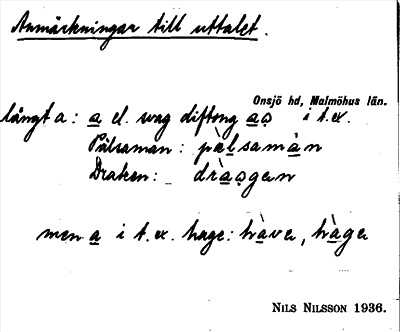 Anmärkningar till uttalet.
Onsjö hd, Malmöhus län.
långt a: a el. svag diftong ao̧ i t.ex.
Pålsaman: pàlsamàn
Draken: drào̧gen
men a i t.ex. hage: hàva, hàga
NILS NILSSON 1936.